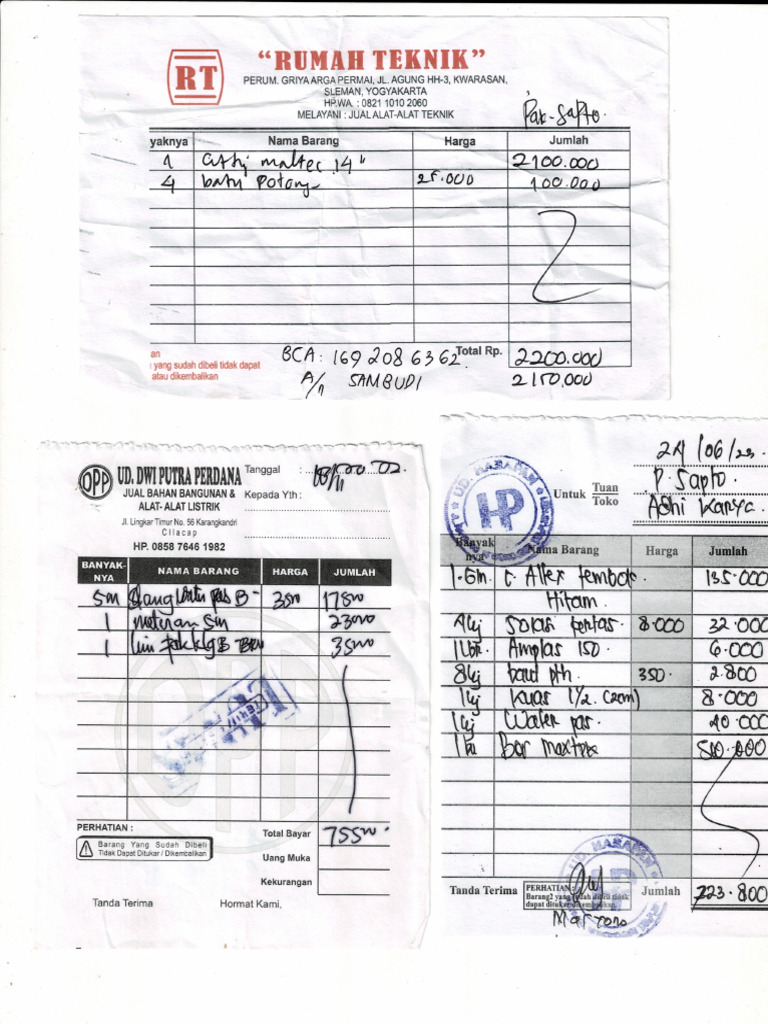 RT
"RUMAH TEKNIK"
PERUM. GRIYA ARGA PERMAI, JL. AGUNG HH-3, KWARASAN,
SLEMAN, YOGYAKARTA
HP.WA. : 0821 1010 2060
MELAYANI : JUAL ALAT-ALAT TEKNIK
Pak-Sapto.
yaknya Nama Barang Harga Jumlah
1 maltec 14" 2100.000
4 batu potong 25.000 100.000
an
yang sudah dibeli tidak dapat
atau dikembalikan
BCA : 169 208 6362. Total Rp. 2200.000
A/n SAMBUDI 2150.000
OPP
UD. DWI PUTRA PERDANA
JUAL BAHAN BANGUNAN &
ALAT- ALAT LISTRIK
Jl. Lingkar Timur No. 56 Karangkandri
Cilacap
HP. 0858 7646 1982
Tanggal :
Kepada Yth :
BANYAK-NYA NAMA BARANG HARGA JUMLAH
5m B 3500 17500
1 meteran 5m 23000
1 35000
PERHATIAN :
Barang Yang Sudah Dibeli
Tidak Dapat Ditukar / Dikembalikan
Total Bayar 75500
Uang Muka
Kekurangan
Tanda Terima Hormat Kami,
UD. HARAPAN
HP
24/06/23.
Untuk Tuan P. Sapto.
Toko Ashi Karya.
Banyak nya Nama Barang Harga Jumlah
1.Gln tembok 135.000
Hitam.
4bj Solasi kertas. 8.000 32.000
1 lbr. Amplas 150. 6.000
8bj baut 350. 2.800
1bj Kuas 1 1/2. (2cm) 8.000
1bj Water pas. 40.000
Bor 500.000
Tanda Terima
PERHATIAN :
Barang2 yang sudah dibeli tidak
dapat ditukar/dikembalikan.
Jumlah 723.800
Martono